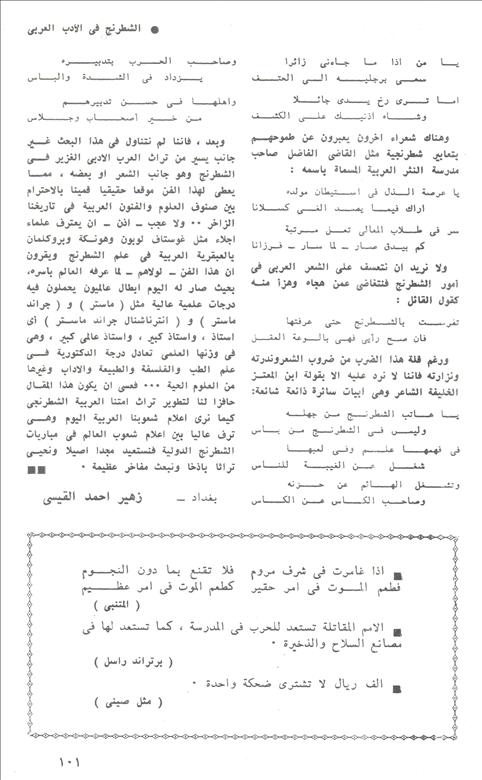 ● الشطرنج فى الأدب العربى
يا من اذا ما جاءنى زائرا
سعى برجليه الى الحتف
اما ترى رخ يدى جائلا
وشاه اذنيك على الكشف
وهناك شعراء اخرون يعبرون عن طموحهم
بتعابير شطرنجية مثل القاضى الفاضل صاحب
مدرسة النثر العربية المسماة باسمه :
يا عرصة الذل فى استيطان مولده
اراك فيما يصد الفى كسلانا
سر فى طلاب المعالى تعل مرتبة
كم بيدق صار ـ لما سار ـ فرزانا
ولا نريد ان نتعسف على الشعر العربى فى
أمور الشطرنج فنتغاضى عمن هجاه وهزأ منه
كقول القائل :
تفرست بالشطرنج حتى عرفتها
فان صح رأيى فهى بالوعة العقل
ورغم قلة هذا الضرب من ضروب الشعروندرته
ونزارته فاننا لا نرد عليه الا بقولة ابن المعتز
الخليفة الشاعر وهى ابيات سائرة ذائعة شائعة:
يا عائب الشطرنج من جهله
وليس فى الشطرنج من باس
فى فهمها علم وفى لعبها
شغل عن الغيبة للناس
وتشغل الهائم عن حزنه
وصاحب الكاس عن الكاس
وصاحب الحرب بتدبيره
يزداد فى الشدة والباس
واهلها فى حسن تدبيرهم
من خير اصحاب وجلاس
وبعد ، فاننا لم نتناول فى هذا البحث غير
جانب يسير من تراث العرب الادبى الغزير فى
الشطرنج وهو جانب الشعر او بعضه ، مما
يعطى لهذا الفن موقعا حقيقيا قمينا بالاحترام
بين صنوف العلوم والفنون العربية فى تاريخنا
الزاخر ٠٠ ولا عجب ـ اذن ـ ان يعترف علماء
اجلاء مثل غوستاف لوبون وهونكة وبروكلمان
بالعبقرية العربية فى علم الشطرنج ويقرون
ان هذا الفن ـ لولاهم ـ لما عرفه العالم باسره،
بحيث صار له اليوم ابطال عالميون يحملون فيه
درجات علمية عالية مثل ( ماستر ) و ( جراند
ماستر ) و ( انترناشنال جراند ماستر ) أى
استاذ ، واستاذ كبير ، واستاذ عالمى كبير ، وهى
فى وزنها العلمى تعادل درجة الدكتورية فى
علم الطب والفلسفة والطبيعة والاداب وغيرها
من العلوم الحية ٠٠٠ فعسى ان يكون هذا المقال
حافزا لنا لتطوير تراث امتنا العربية الشطرنجى
كيما نرى اعلام شعوبنا العربية اليوم وهى
ترف عاليا بين اعلام شعوب العالم فى مباريات
الشطرنج الدولية فنستعيد مجدا اصيلا ونحيى
تراثا باذخا ونبعث مفاخر عظيمة ٠
بغداد ـ زهير احمد القيسى
اذا غامرت فى شرف مروم فلا تقنع بما دون النجوم
فطعم الموت فى امر حقير كطعم الموت فى امر عظيم
( المتنبى )
الامم المقاتلة تستعد للحرب فى المدرسة ، كما تستعد لها فى
مصانع السلاح والذخيرة ٠
( برتراند راسل )
الف ريال لا تشترى ضحكة واحدة ٠
( مثل صينى )
١٠١